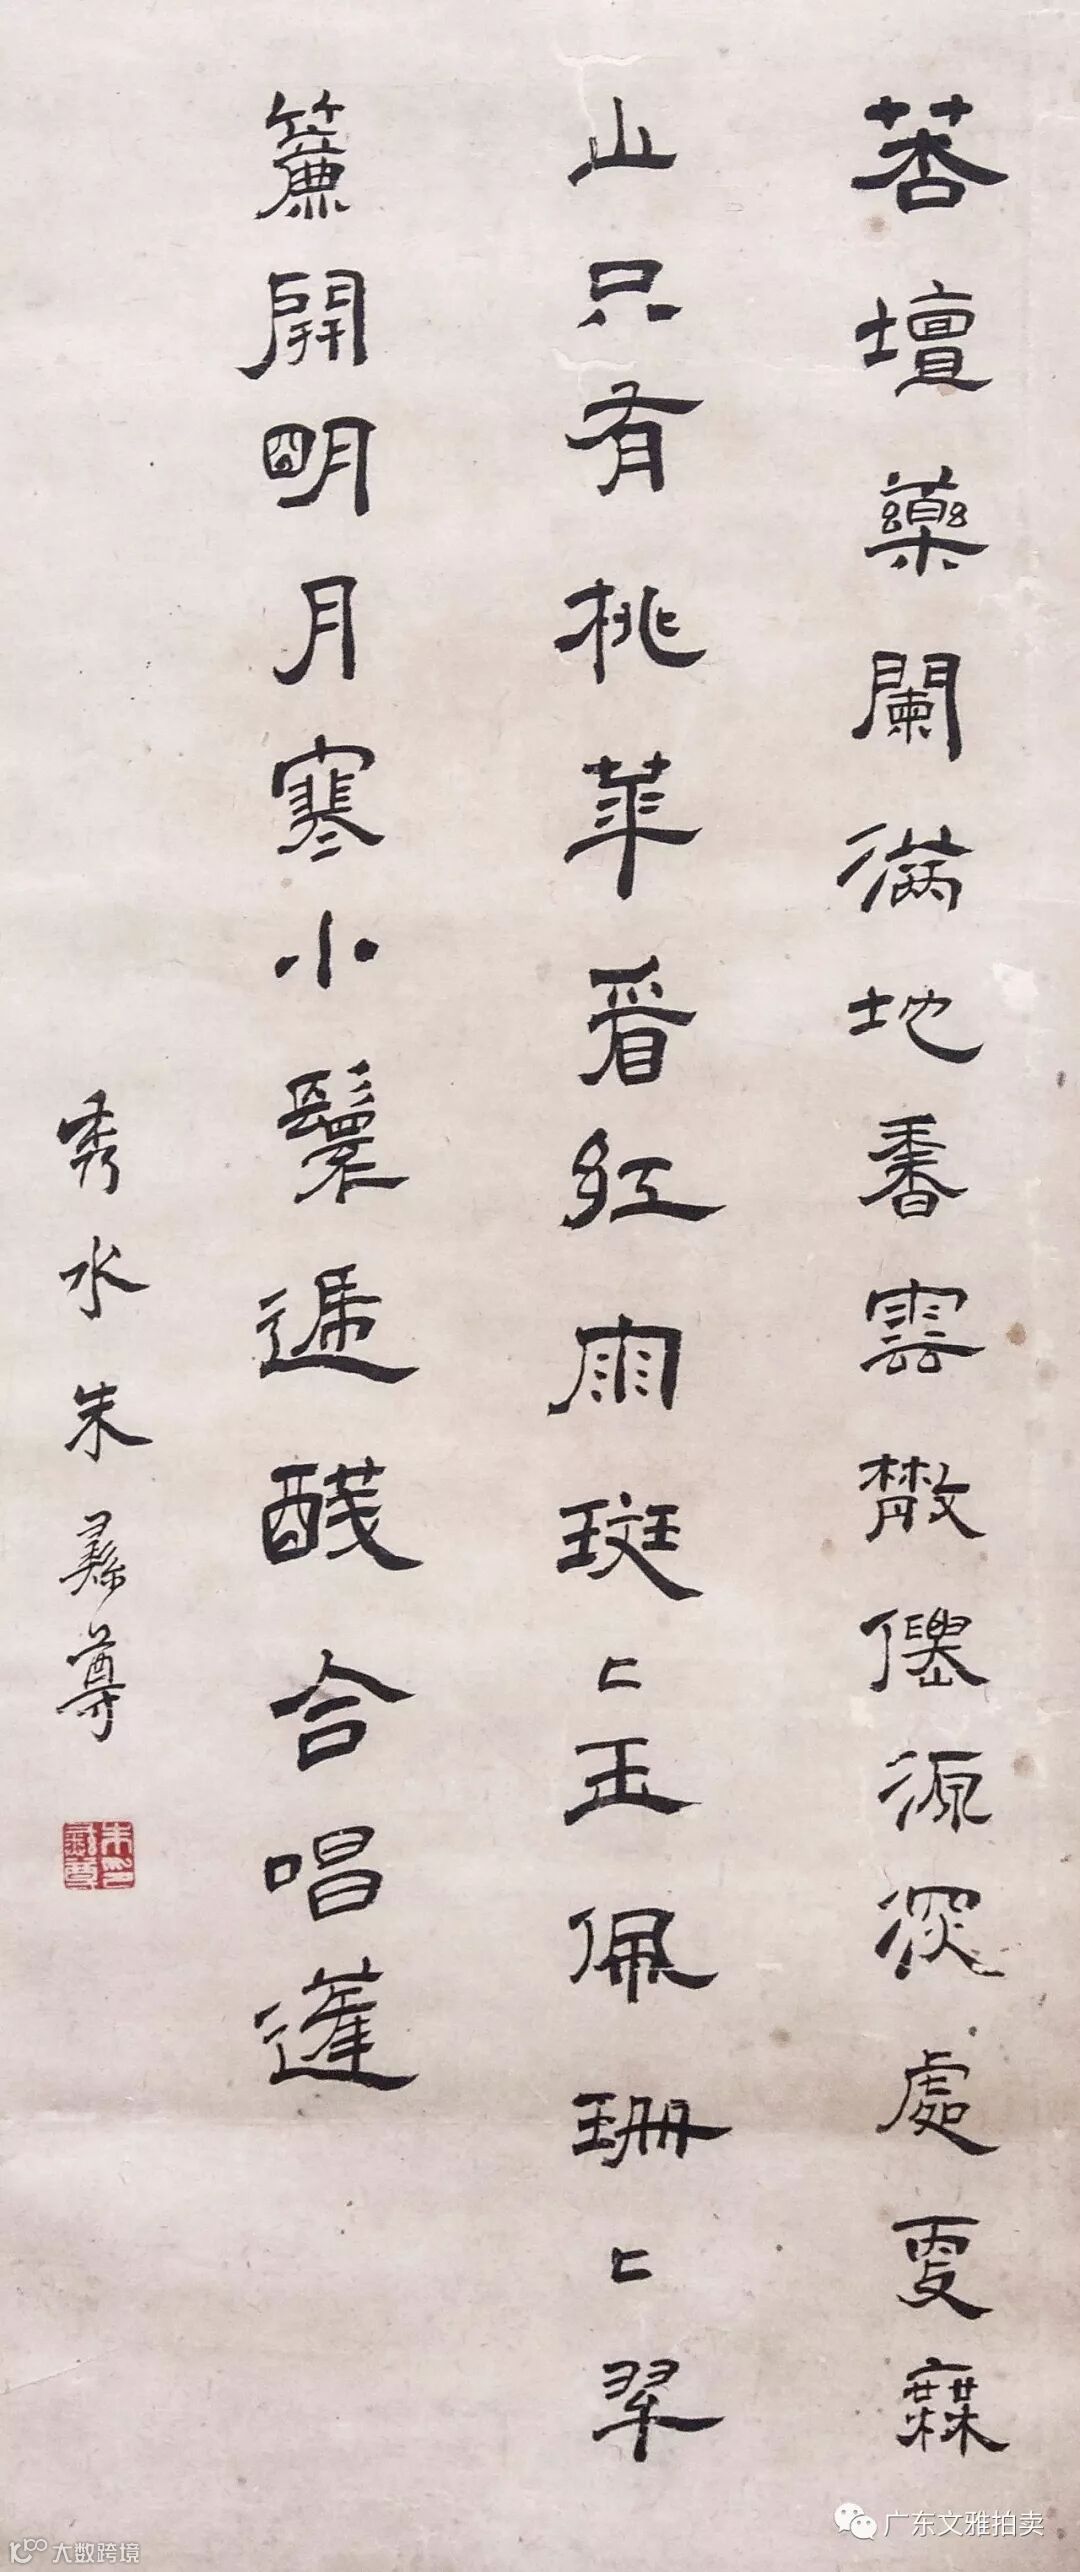 壇藥闌滿地香雲散僊源深處更無
山只有桃華看紅雨斑〻玉佩珊〻翠
簾開明月寒小鬟遞醆合唱蓬
秀水朱彝尊
朱印彝尊
广东文雅拍卖
大数跨境